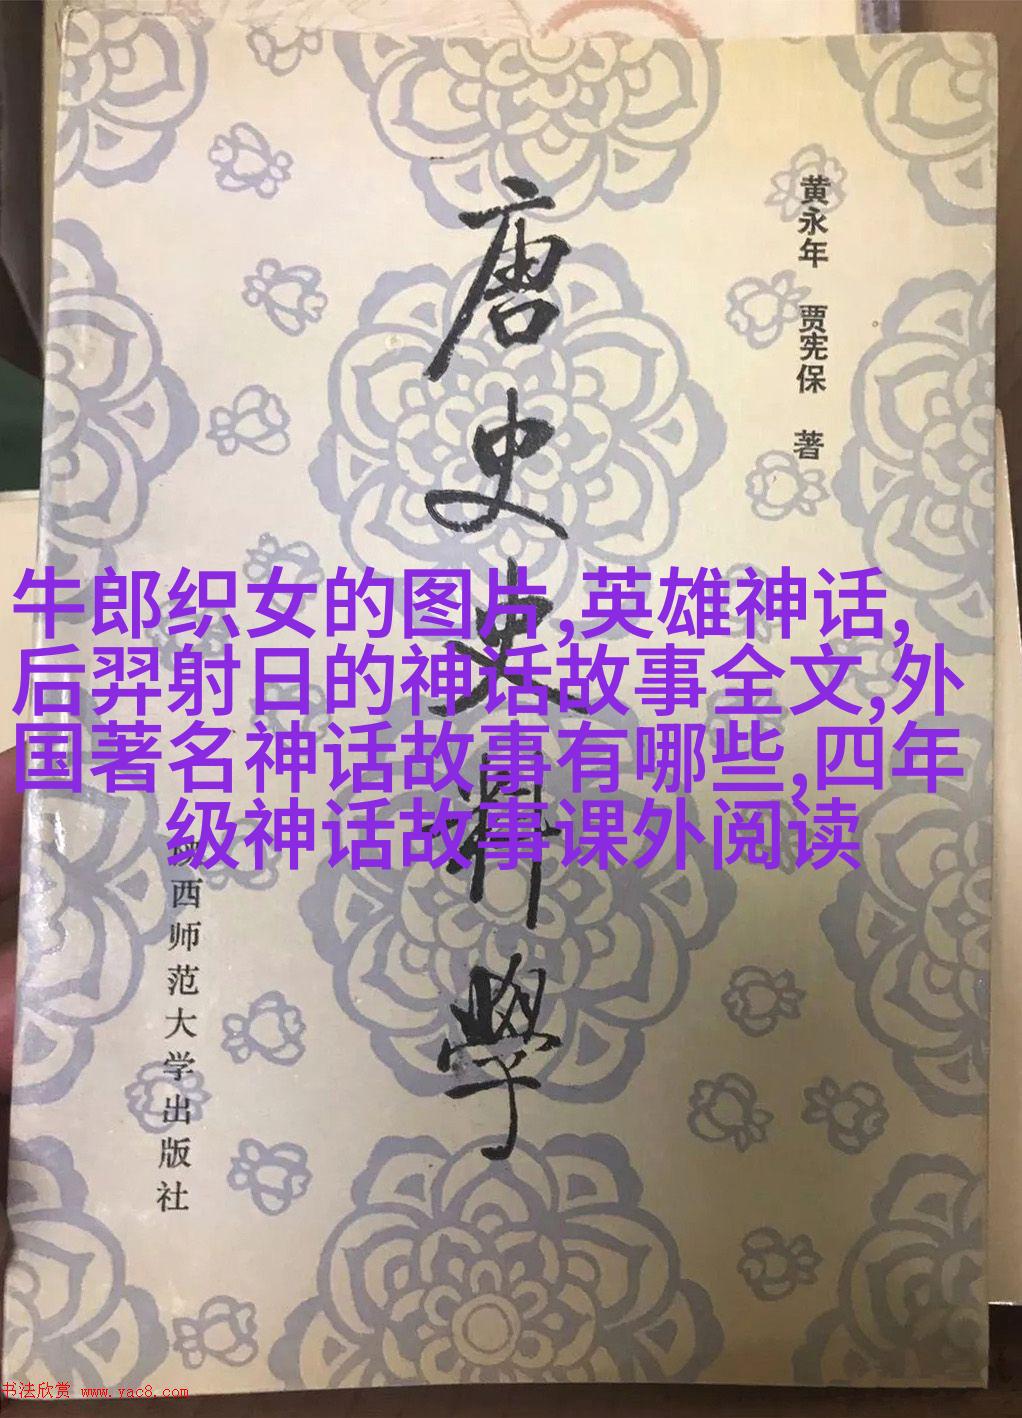 黄永年 贾宪保 著
唐史史料学
牛郎织女的图片,英雄神话,
后羿射日的神话故事全文,外
国著名神话故事有哪些,四年
级神话故事课外阅读
陕西师范大学出版社
书法欣赏 www.yac8.com